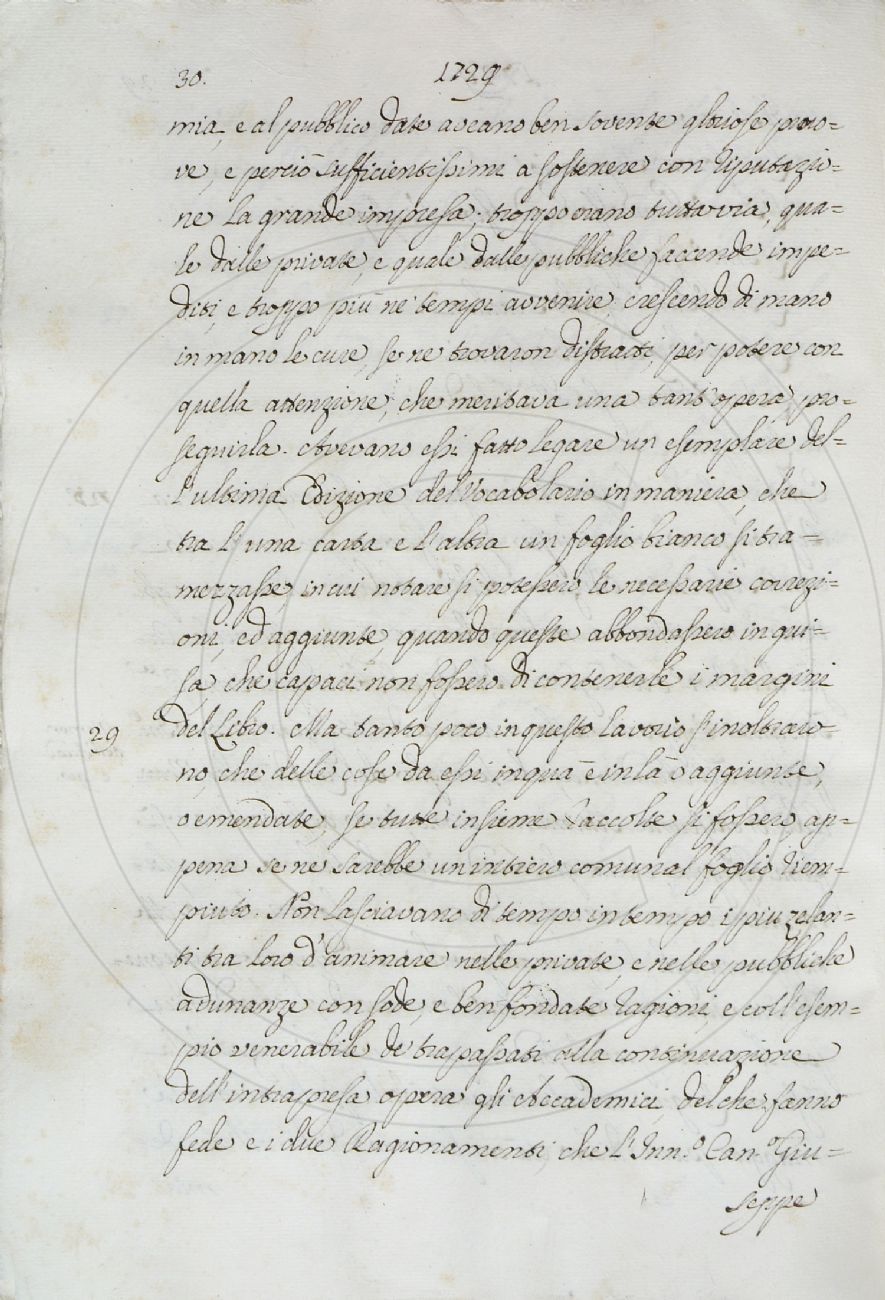 30.
1729
mia, e al pubblico date aveano ben sovente gloriose pruo=
ve, e perciò sufficientissimi a sostenere con riputazio=
ne la grande impresa; troppo erano tuttavia, qua=
le dalle private, e quale dalle pubbliche faccende impe=
diti, e troppo più ne' tempi avvenire, crescendo di mano
in mano le cure, se ne trovaron distratti, per potere con
quella attenzione, che meritava una tant'opera, pro=
seguirla. Avevano essi fatto legare un esemplare del=
l'ultima Edizione del Vocabolario in maniera, che
tra l'una carta e l'altra un foglio bianco si tra=
mezzasse, in cui notare si potessero le necessarie correzi=
oni, ed aggiunte, quando queste abbondassero in gui=
sa, che capaci non fossero di contenerle i margini
29
del Libro. Ma tanto poco in questo lavorio s'inoltraro=
no, che delle cose da essi in quà e in là o aggiunte,
o emendate, se tutte insieme raccolte si fossero, ap=
pena se ne sarebbe un intiero comunal foglio riem=
piuto. Non lasciavano di tempo in tempo i piu zelan=
ti tra loro d'animare nelle private, e nelle pubbliche
adunanze con sode, e ben fondate ragioni, e coll'esem=
pio venerabile de' trapassati alla continuazione
dell'intrapresa opera gli Accademici, del che fanno
fede e i due Ragionamenti, che l'Inn.º Can.º Giu=
seppe